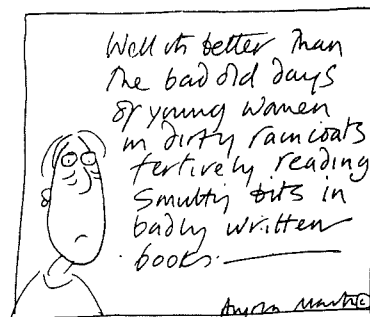 Well its better than
the bad old days
of young women
in dirty raincoats
fertively reading
Smutty bits in
badly written
books.
Angela Martin ©